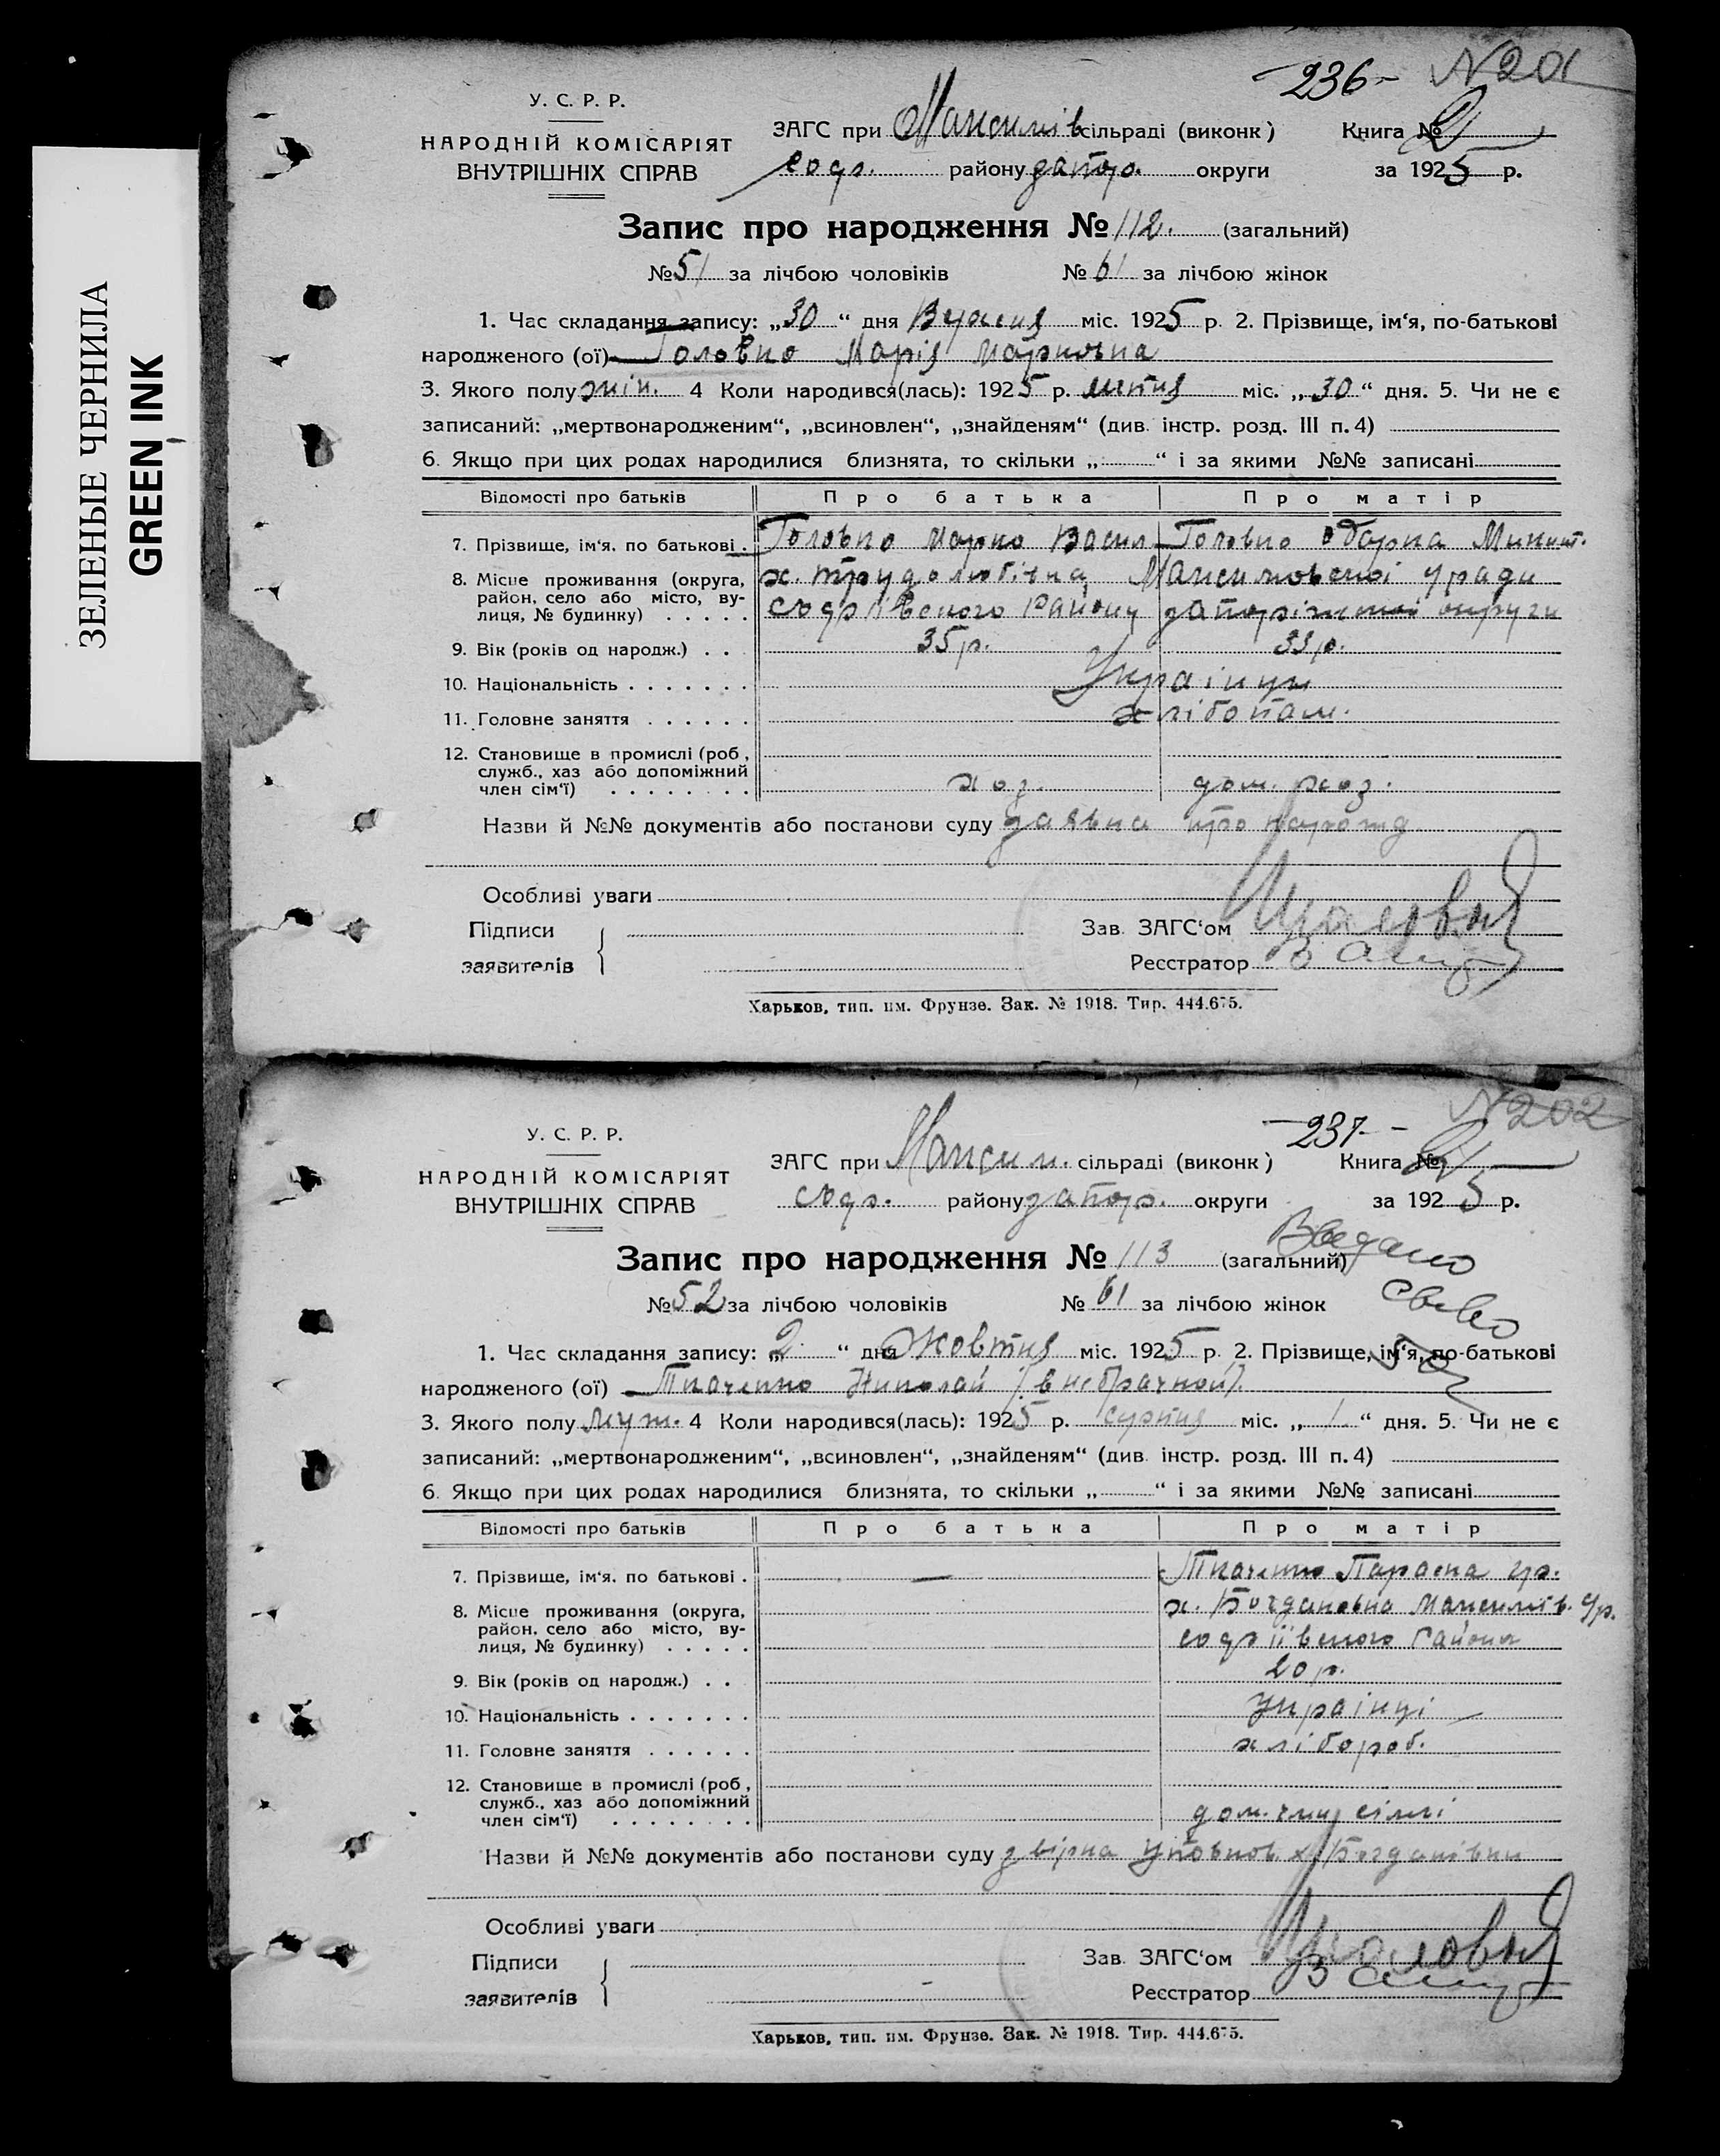 ЗЕЛЕНЫЕ ЧЕРНИЛА
GREEN INK
-236- №201
У. С. Р. Р.
НАРОДНІЙ КОМІСАРІЯТ
ВНУТРІШНІХ СПРАВ
ЗАГС при Максимів сільраді (виконк) Книга № 2
софі. району запор. округи за 1925 р.
Запис про народження № 112. (загальний)
№ 51 за лічбою чоловіків № 61 за лічбою жінок
1. Час складання запису: „30“ дня Вересня міс. 1925 р. 2. Прізвище, ім‘я, по-батькові
народженого (ої) Головко Марія Марковна
3. Якого полу жін. 4 Коли народився(лась): 1925 р. липня міс. „30“ дня. 5. Чи не є
записаний: „мертвонародженим“, „всиновлен“, „знайденям“ (див. інстр. розд. III п. 4)
6. Якщо при цих родах народилися близнята, то скільки „ “ і за якими №№ записані
Відомості про батьків Про батька Про матір
7. Прізвище, ім‘я, по батькові . Головко Марко Васил Головко Одарка Микит.
8. Місце проживання (округа, х. трудолюбівка Максимовської уради
район, село або місто, ву- Софіївського Району запоріжської округи
лиця, № будинку) . . . . .
9. Вік (років од народж.) . . 35 р. 33 р.
10. Національність . . . . . . . Українци
11. Головне заняття . . . . . . хлібопаш.
12. Становище в промислі (роб,
служб., хаз або допоміжний
член сім‘ї) . . . . . . . . хоз. дом. хоз.
Назви й №№ документів або постанови суду заявка про народ
Особливі уваги
Підписи Зав. ЗАГС‘ом
заявителів Реєстратор
Харьков, тип. им. Фрунзе. Зак. № 1918. Тир. 444.675.
-237- №202
У. С. Р. Р.
НАРОДНІЙ КОМІСАРІЯТ
ВНУТРІШНІХ СПРАВ
ЗАГС при Максим. сільраді (виконк) Книга № 2
софі. району запор. округи за 1925 р.
Запис про народження № 113 (загальний)
№ 52 за лічбою чоловіків № 61 за лічбою жінок
1. Час складання запису: „2“ дня Жовтня міс. 1925 р. 2. Прізвище, ім‘я, по-батькові
народженого (ої) Ткаченко Николай (внебрачной).
3. Якого полу муж. 4 Коли народився(лась): 1925 р. серпня міс. „1“ дня. 5. Чи не є
записаний: „мертвонародженим“, „всиновлен“, „знайденям“ (див. інстр. розд. III п. 4)
6. Якщо при цих родах народилися близнята, то скільки „ “ і за якими №№ записані
Відомості про батьків Про батька Про матір
7. Прізвище, ім‘я, по батькові . — Ткаченко Параска гр.
8. Місце проживання (округа, х. Богдановка Максимів. Ур.
район, село або місто, ву- софіївського Району
лиця, № будинку) . . . . .
9. Вік (років од народж.) . . 20 р.
10. Національність . . . . . . . українці
11. Головне заняття . . . . . . хлібороб.
12. Становище в промислі (роб,
служб., хаз або допоміжний
член сім‘ї) . . . . . . . . дом. сімї
Назви й №№ документів або постанови суду звірка уповнов. х. Богданівки
Особливі уваги
Підписи Зав. ЗАГС‘ом
заявителів Реєстратор
Харьков, тип. им. Фрунзе. Зак. № 1918. Тир. 444.675.